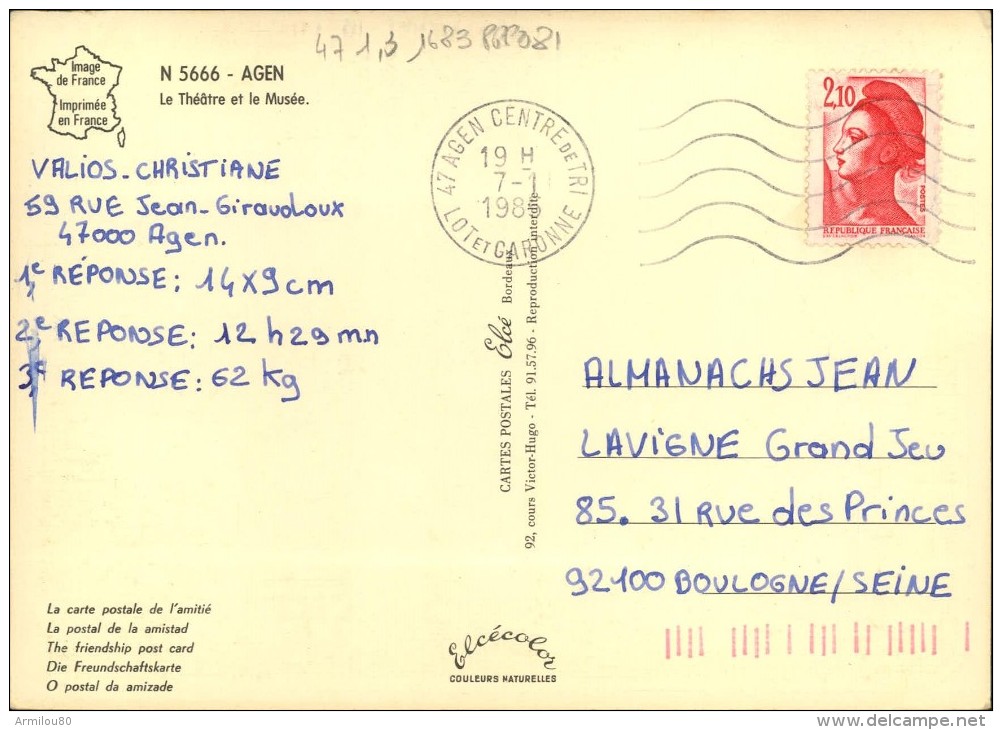 47 1,3
Image
de France
Imprimée
en France
N 5666 - AGEN
Le Théâtre et le Musée.
47 AGEN CENTRE DE TRI
19 H
7-1
198
LOT ET GARONNE
2,10
POSTES
REPUBLIQUE FRANÇAISE
VALIOS-CHRISTIANE
59 RUE Jean-Giraudoux
47000 Agen.
1,e RÉPONSE: 14x9cm
2,e REPONSE: 12 h 29 mn
3,e REPONSE: 62 kg
CARTES POSTALES Elcé Bordeaux
92, cours Victor-Hugo - Tél. 91.57.96 - Reproduction interdite
ALMANACHS JEAN
LAVIGNE Grand Jeu
85. 31 Rue des Princes
92100 BOULOGNE/SEINE
La carte postale de l'amitié
La postal de la amistad
The friendship post card
Die Freundschaftskarte
O postal da amizade
Elcécolor
COULEURS NATURELLES
Armilou80
delcampe.net